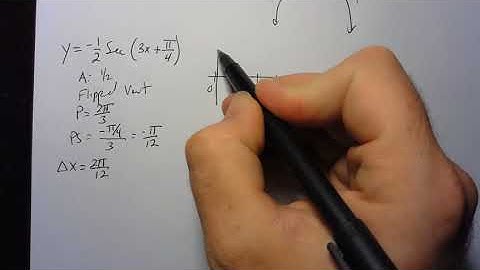 y = -1/2 Sec (3x + π/4)
A: 1/2
Flipped Vert
P = 2π/3
PS = -π/4/3 = -π/12
Δx = 2π/12
0